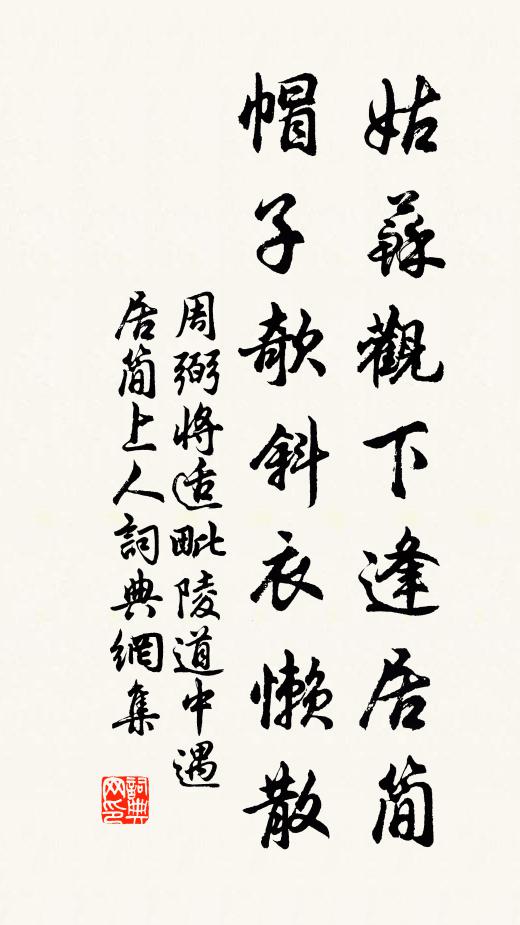 姑蘇觀下逢居簡
帽子欹斜衣懶散
周弼將適毗陵道中遇
居簡上人詞典網集
詞典
网印